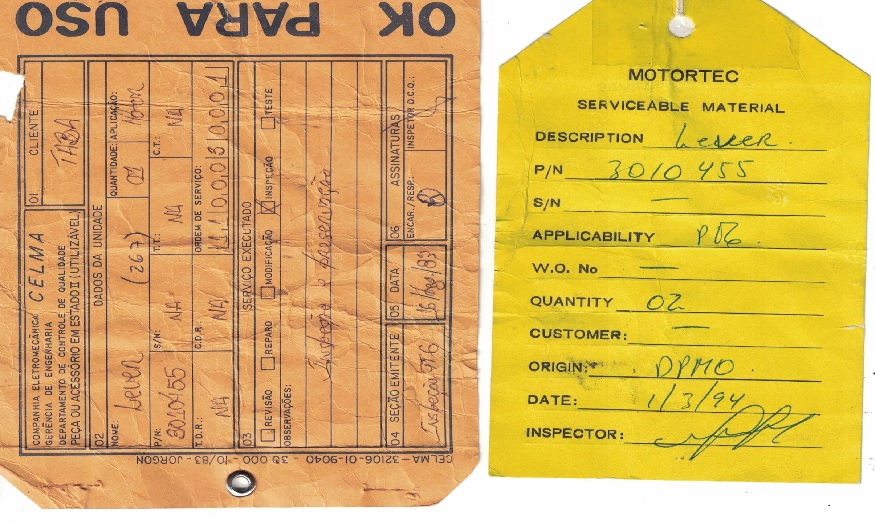 OK PARA USO
COMPANHIA ELETROMECÂNICA CELMA
GERÊNCIA DE ENGENHARIA
DEPARTAMENTO DE CONTROLE DE QUALIDADE
PEÇA OU ACESSÓRIO EM ESTADO II (UTILIZÁVEL)
01 CLIENTE
TABA
02 DADOS DA UNIDADE
NOME: Lever (267)
QUANTIDADE: APLICAÇÃO:
P/N: 3010455
S/N: NA
T.T.: NA
C.T.: NA
T.D.R.: NA
C.D.R.: NA
ORDEM DE SERVIÇO:
03 SERVIÇO EXECUTADO
REVISÃO REPARO MODIFICAÇÃO X INSPEÇÃO TESTE
OBSERVAÇÕES:
Inspeção e preservação
04 SEÇÃO EMITENTE
Inspeção PT6
05 DATA
06 ASSINATURAS
ENCAR./RESP.: INSPETOR D.C.Q.:
CELMA - 32106-01-9040 - 35 000 - 10/83 - JORGON
MOTORTEC
SERVICEABLE MATERIAL
DESCRIPTION Lever
P/N 3010455
S/N —
APPLICABILITY PT6
W.O. No —
QUANTITY 02
CUSTOMER: —
ORIGIN: DPMO
DATE: 1/3/94
INSPECTOR: